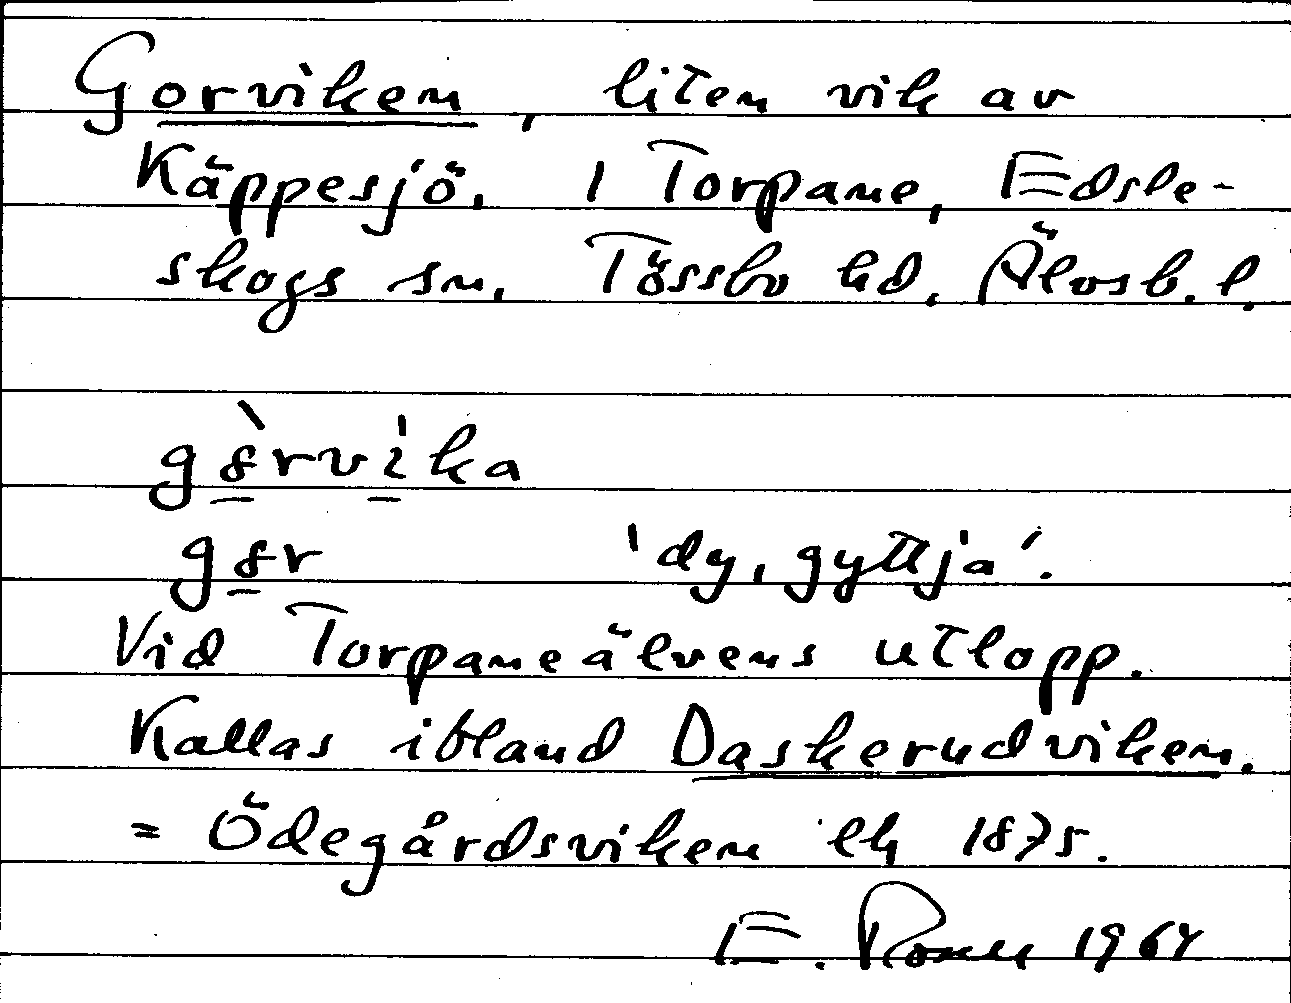 Gorviken, liten vik av
Käppesjö. I Torpane, Edsle-
skogs sn. Tössbo hd. Älvsb. l.
gȣ̀rvi̍ka
gȣr 'dy, gyttja'.
Vid Torpaneälvens utlopp.
Kallas ibland Daskerudviken.
= Ödegårdsviken ek 1875.
E. 1964